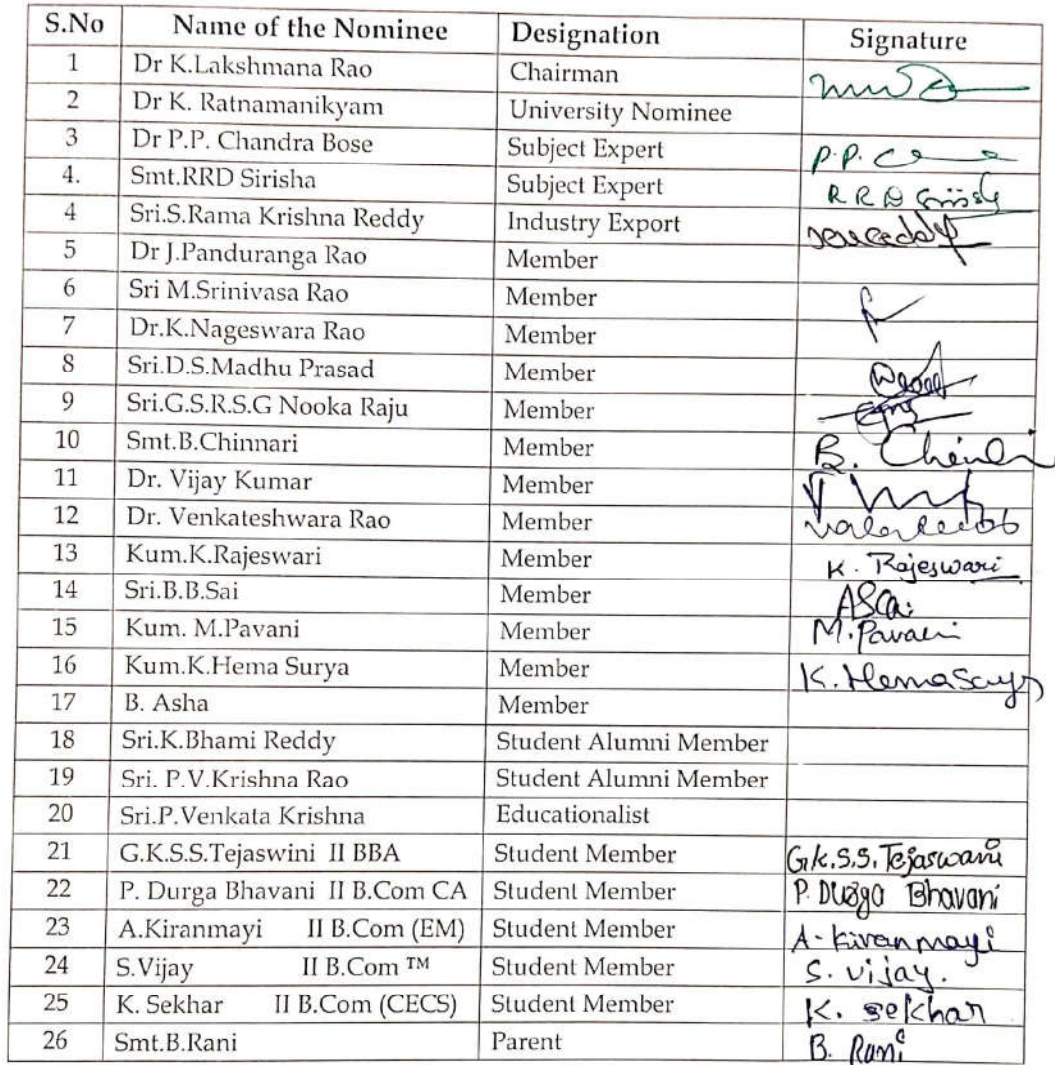 S.No Name of the Nominee Designation Signature
1 Dr K.Lakshmana Rao Chairman
2 Dr K. Ratnamanikyam University Nominee
3 Dr P.P. Chandra Bose Subject Expert P.P.
4. Smt.RRD Sirisha Subject Expert R R D
4 Sri.S.Rama Krishna Reddy Industry Export
5 Dr J.Panduranga Rao Member
6 Sri M.Srinivasa Rao Member
7 Dr.K.Nageswara Rao Member
8 Sri.D.S.Madhu Prasad Member
9 Sri.G.S.R.S.G Nooka Raju Member
10 Smt.B.Chinnari Member B.
11 Dr. Vijay Kumar Member
12 Dr. Venkateshwara Rao Member
13 Kum.K.Rajeswari Member K. Rajeswari
14 Sri.B.B.Sai Member
15 Kum. M.Pavani Member M.Pavani
16 Kum.K.Hema Surya Member K.
17 B. Asha Member
18 Sri.K.Bhami Reddy Student Alumni Member
19 Sri. P.V.Krishna Rao Student Alumni Member
20 Sri.P.Venkata Krishna Educationalist
21 G.K.S.S.Tejaswini II BBA Student Member G.K.S.S. Tejaswani
22 P. Durga Bhavani II B.Com CA Student Member P. Durga Bhavani
23 A.Kiranmayi II B.Com (EM) Student Member A- Kiranmayi
24 S.Vijay II B.Com ™ Student Member S. vijay.
25 K. Sekhar II B.Com (CECS) Student Member K. sekhar
26 Smt.B.Rani Parent B. Rani